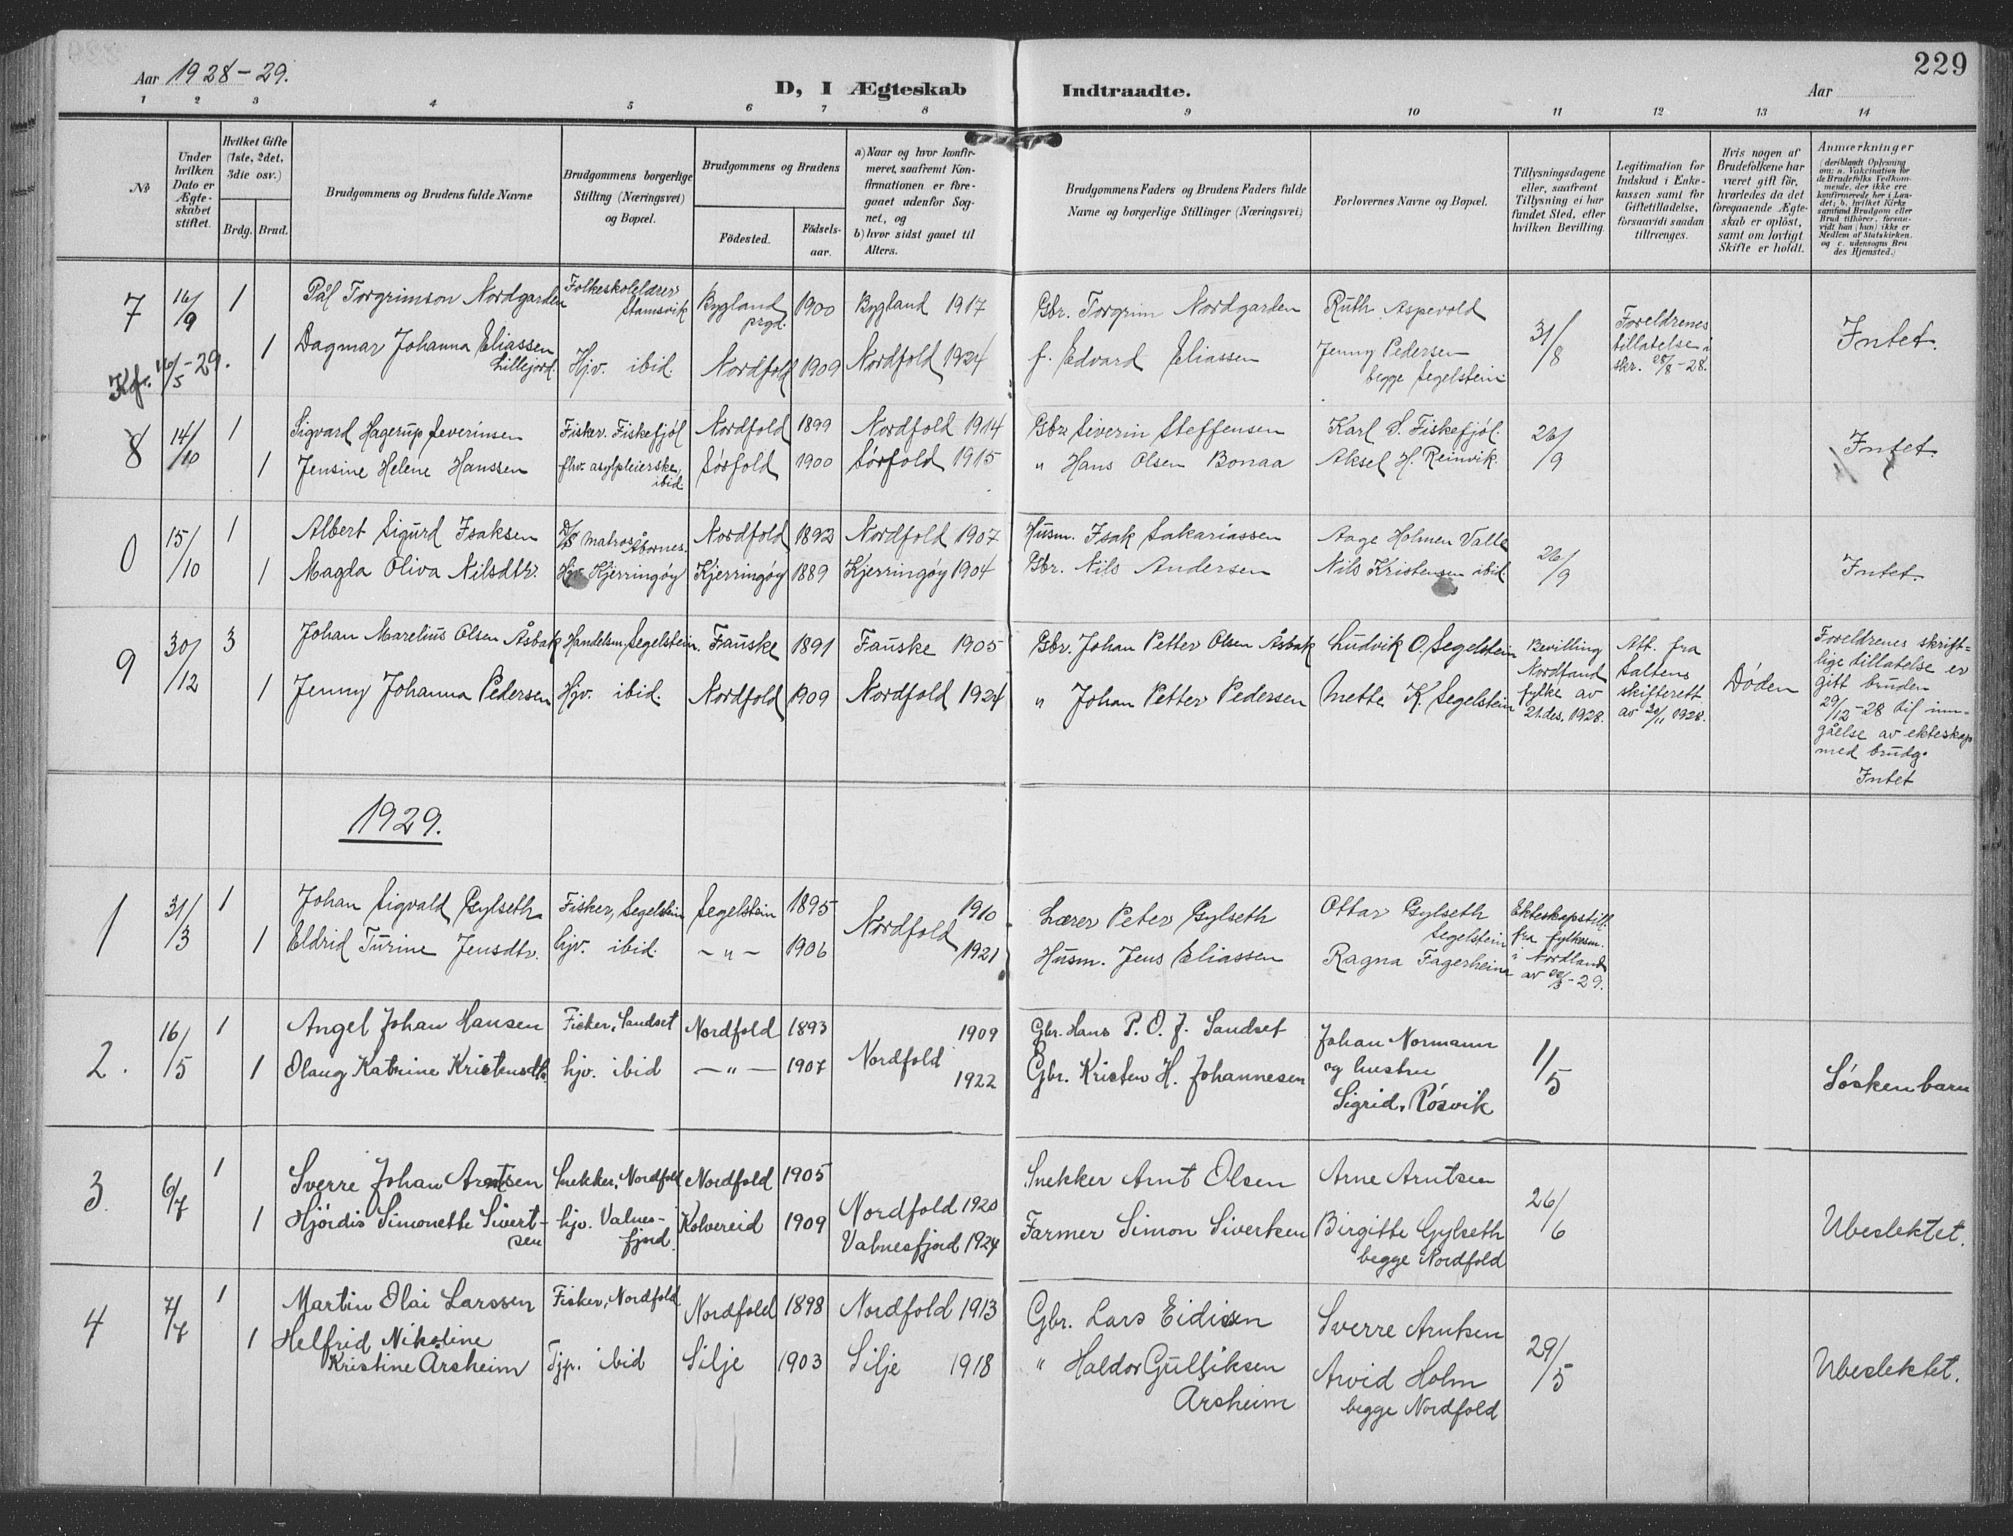 Aar 1928-29.
D, I Ægteskab Indtraadte.
Aar
229
1 2 3 4 5 6 7 8 9 10 11 12 13 14
No
Under hvilken Dato er Ægteskabet stiftet.
Hvilket Gifte (1ste, 2det, 3die osv.)
Brdg. Brud.
Brudgommens og Brudens fulde Navne
Brudgommens borgerlige Stilling (Næringsvei) og Bopæl.
Brudgommens og Brudens
Fødested.
Fødselsaar.
a) Naar og hvor konfirmeret, saafremt Konfirmationen er foregaaet udenfor Sognet, og
b) hvor sidst gaaet til Alters.
Brudgommens Faders og Brudens Faders fulde Navne og borgerlige Stillinger (Næringsvei)
Forlovernes Navne og Bopæl.
Tillysningsdagene eller, saafremt Tillysning ei har fundet Sted, efter hvilken Bevilling.
Legitimation for Indskud i Enkekassen samt for Giftetilladelse, forsaavidt saadan tiltrænges.
Hvis nogen af Brudefolkene har været gift før, hvorledes da det foregaaende Ægteskab er opløst, samt om lovligt Skifte er holdt.
Anmærkninger
(deriblandt Oplysning om: a. Vakcination for de Brudefolks Vedkommende, der ikke ere konfirmerede her i Landet; b. hvilket Kirkesamfund Brudgom eller Brud tilhører, forsaavidt han (hun) ikke er Medlem af Statskirken, og c. udensogns Brudes Hjemsted.)
7 16/9 1 Pål Torgrimson Nordgarden Folkeskolelærer Stamsvik Bygland prgd. 1900 Bygland 1917 Gbr. Torgrim Nordgarden Ruth Aspevold 31/8 Foreldrenes tillatelse i skr. 28/8-28. Intet.
Kfr. 10/5-29. 1 Dagmar Johanna Eliassen Lillejord. Hjv. ibid. Nordfold 1909 Nordfold 1924 f. Edvard Eliassen Jenny Pedersen begge Segelstein
8 14/10 1 Sigvard Hagerup Severinsen Fisker. Fiskefjøl Nordfold 1899 Nordfold 1914 Gbr Severin Steffensen Karl S. Fiskefjøl. 26/9 Intet.
1 Jensine Helene Hanssen fhv. asylpleierske, ibid Sørfold 1900 Sørfold 1915 " Hans Olsen Bonaa Aksel H. Reinvik.
0 15/10 1 Albert Sigurd Isaksen D/S Matros Åbornes. Nordfold 1892 Nordfold 1907 Husm. Isak Sakariassen Aage Holmen Valle 26/9 Intet.
1 Magda Oliva Nilsdtr. Hjv. Kjerringøy Kjerringøy 1889 Kjerringøy 1904 Gbr. Nils Andersen Nils Kristensen ibid.
9 30/12 3 Johan Marelius Olsen Åsbak Handelsm, Segelstein. Fauske 1891 Fauske 1905 Gbr. Johan Petter Olsen Åsbak Ludvik O, Segelstein Bevilling Nordland fylke av 21. des. 1928. Att. fra Saltens skifterett av 20/11 1928. Døden Foreldrenes skriftlige tillatelse er gitt bruden 29/12-28 til inngåelse av ekteskap med brudg. Intet
1 Jenny Johanna Pedersen Hjv. ibid. Nordfold 1909 Nordfold 1924 " Johan Petter Pedersen Mette K. Segelstein
1929.
1 31/3 1 Johan Sigvald Gylseth Fisker, Segelstein Segelstein 1895 Nordfold 1910 Lærer Peter Gylseth Ottar Gylseth Segelstein Ekteskapstill. fra fylkesm. i Nordland av 20/3-29.
1 Eldrid Turine Jensdtr. hjv. ibid. -"- 1906 1921 Husm. Jens Eliassen Ragna Fagerheim
2. 16/5 1 Angel Johan Hansen Fisker, Sandset Nordfold 1893 Nordfold 1909 Gbr. Hans P. O. J. Sandset Johan Normann og hustru Sigrid, Røsvik 1/5 Søskenbarn
1 Olaug Katrine Kristensdtr. hjv. ibid -"- 1907 1922 Gbr. Kristen H. Johannesen
3. 6/7 1 Sverre Johan Arntsen Snekker, Nordfold Nordfold 1905 Nordfold 1920 Snekker Arnt Olsen Arne Arntsen 26/6 Ubeslektet.
1 Hjørdis Simonette Sivertsen hjv. Valnesfjord. Kolvereid 1909 Valnesfjord 1924 Farmer Simon Sivertsen Birgitte Gylseth begge Nordfold
4 7/7 1 Martin Olai Larssen Fisker, Nordfold Nordfold 1898 Nordfold 1913 Gbr. Lars Eidissen Sverre Arntsen 29/5 Ubeslektet.
1 Helfrid Nikoline Kristine Årsheim Tjp. ibid Silje 1903 Silje 1918 " Haldor Gulliksen Årsheim Arvid Holm begge Nordfold